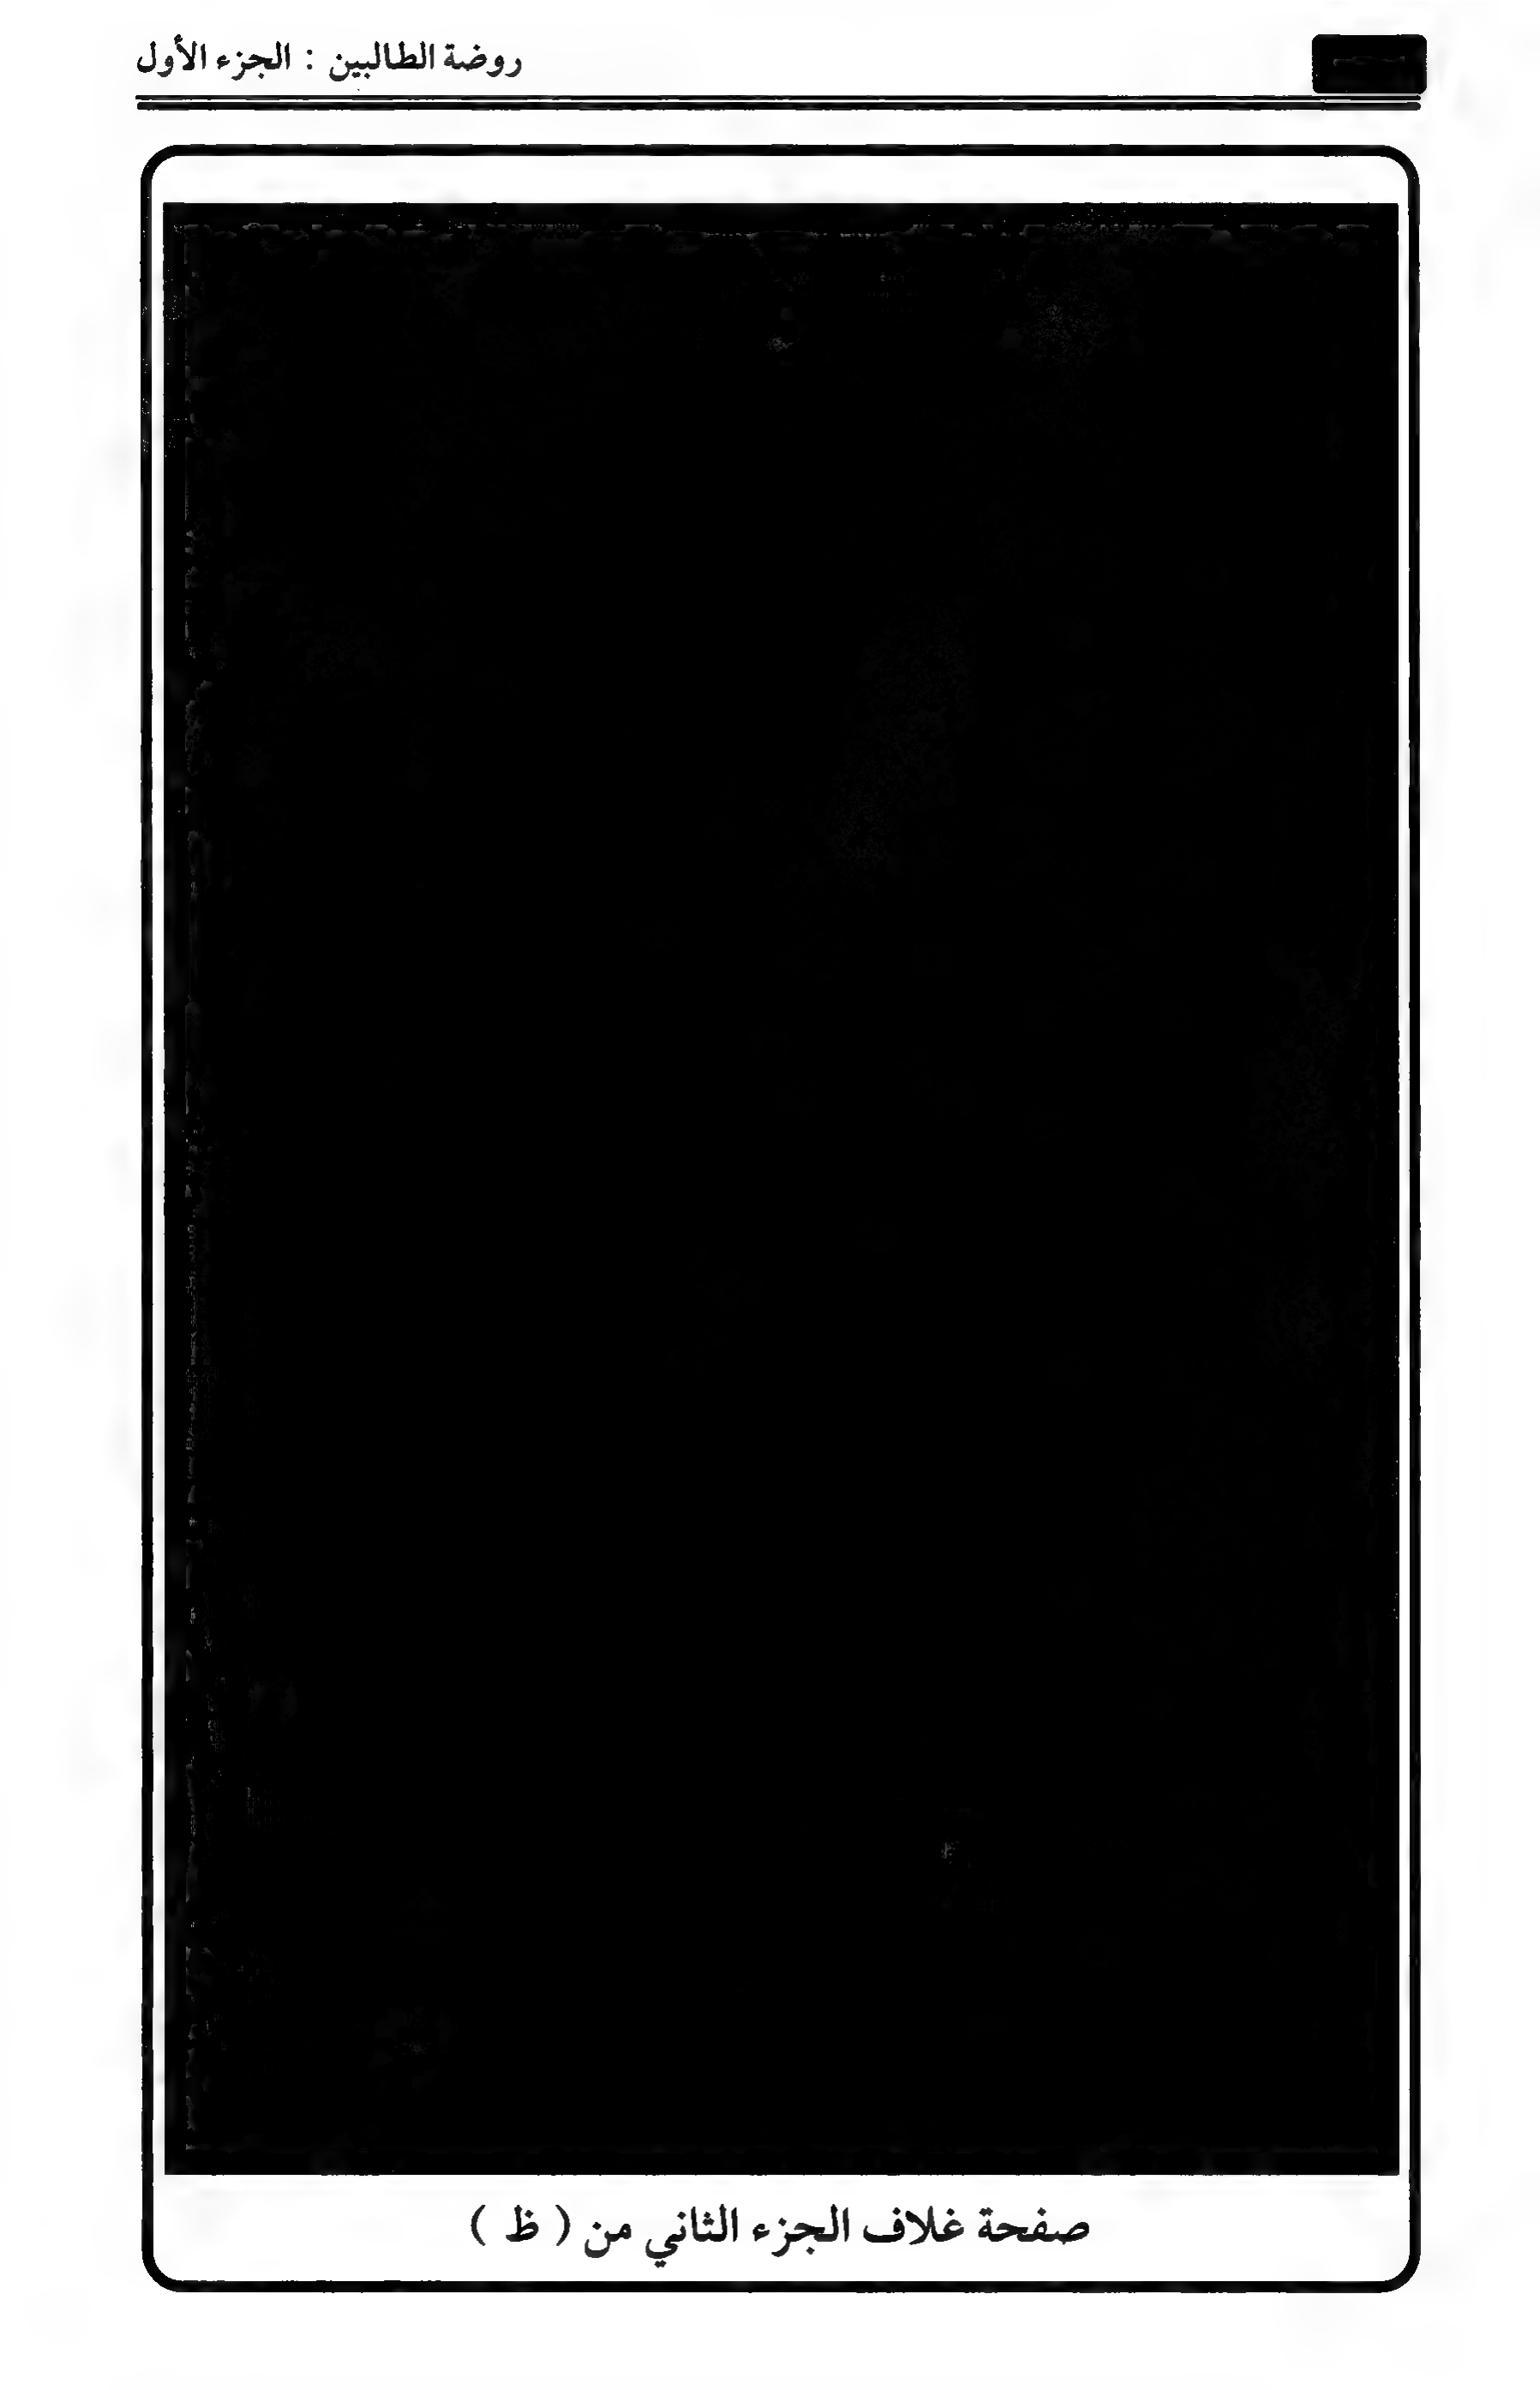 روضة الطالبين : الجزء الأول
صفحة غلاف الجزء الثاني من ( ظ )